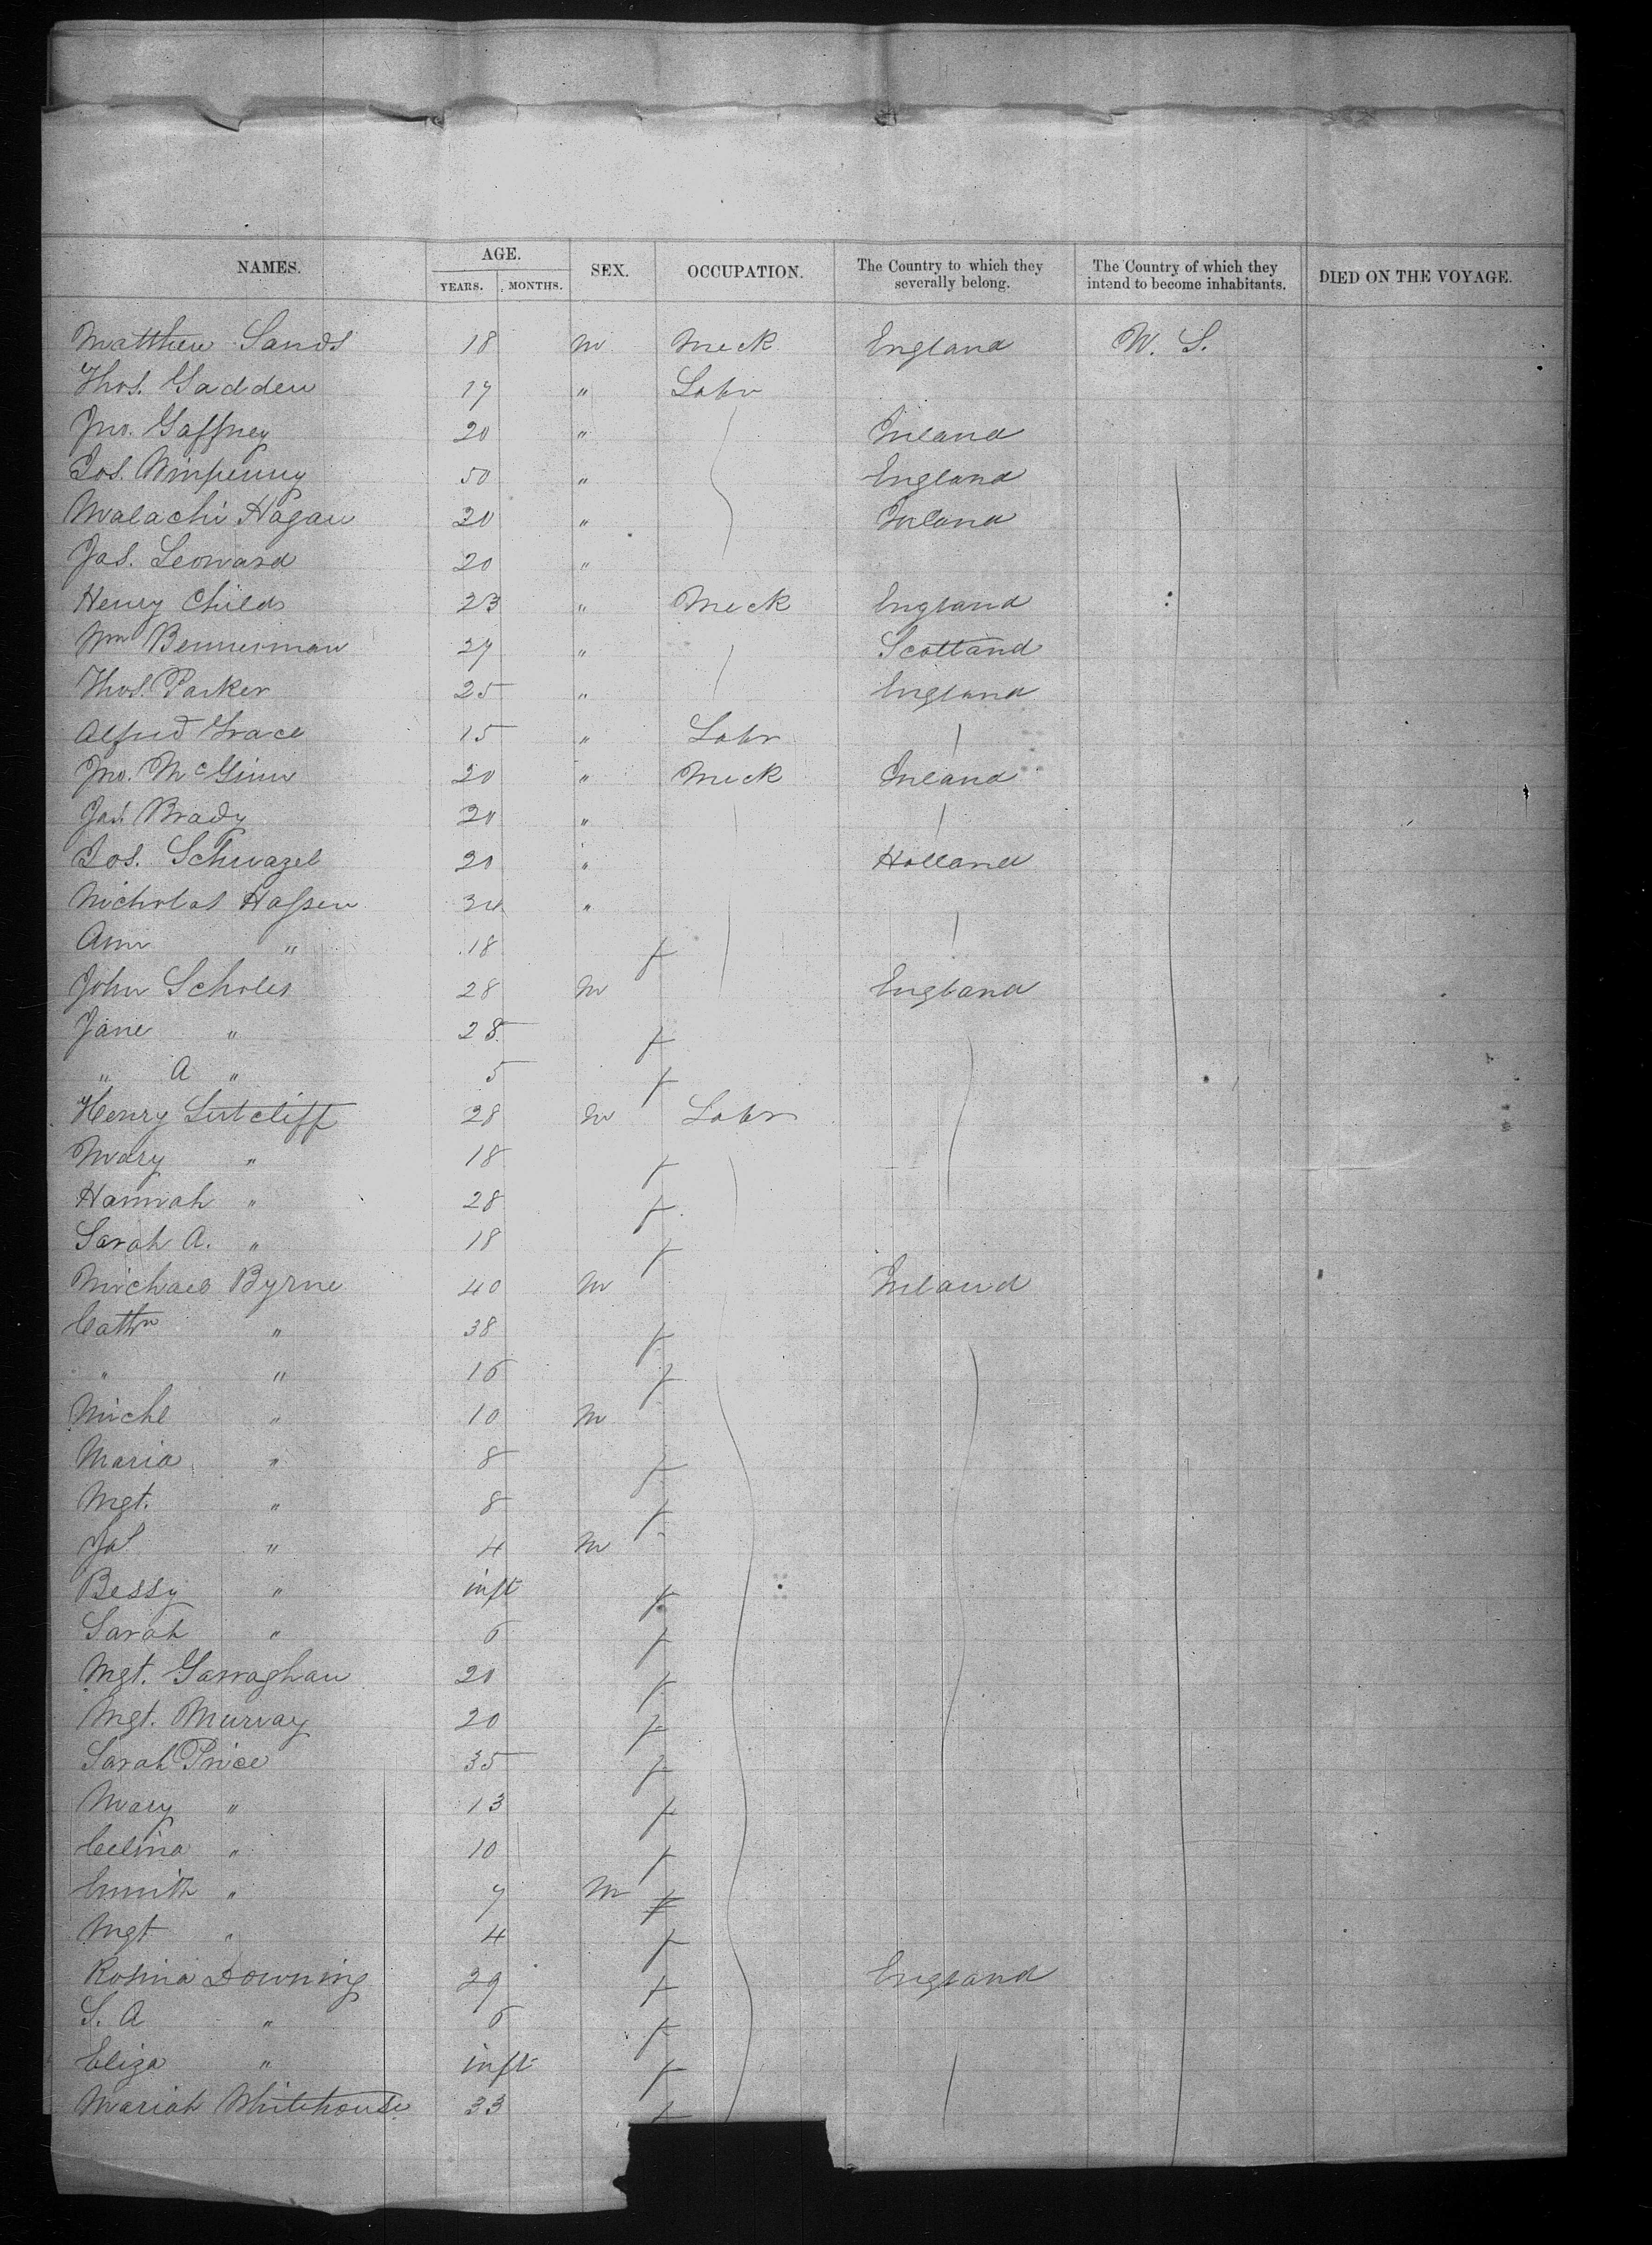 NAMES. AGE. SEX. OCCUPATION. The Country to which they severally belong. The Country of which they intend to become inhabitants. DIED ON THE VOYAGE.
YEARS. MONTHS.
Matthew Sands 18 m Meck England U. S.
Thos. Gadden 17 " Labr
Jno. Gaffney 20 " Ireland
Jos. Winpenny 50 " England
Malachi Hagan 20 " Ireland
Jas. Leonard 20 "
Henry Childs 23 " Meck England
Wm Bennerman 27 " Scotland
Thos. Parker 25 " England
Alfred Grace 15 " Labr
Jno. McGinn 20 " Meck Ireland
Jas. Brady 20 "
Jos. Schwazel 20 " Holland
Nicholas Hassen 34 "
Ann " 18 f
John Scholes 28 m England
Jane " 28 f
" A " 5 f
Henry Sutcliff 28 m Labr
Mary " 18 f
Hannah " 28 f
Sarah A. " 18 f
Michael Byrne 40 m Ireland
Cathn " 38 f
" " 16 f
Michl " 10 m
Maria " 8 f
Mgt. " 8 f
Jas " 4 m
Bessy " inft f
Sarah " 6 f
Mgt. Garraghan 20 f
Mgt. Murray 20 f
Sarah Price 35 f
Mary " 13 f
Celina " 10 f
" 7 m f
Mgt " 4 f
Rosina Downing 29 f England
S. A " 6 f
Eliza " inft f
Mariah Whitehouse 33 f